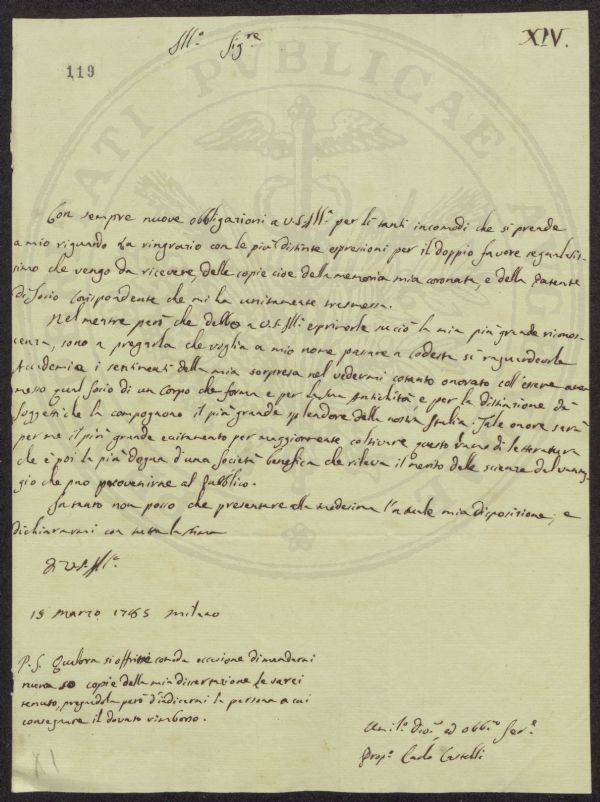 Ill.º Sig.re
XIV.
119
Con sempre nuove obbligazioni a V.S. Ill.ª per li tanti incomodi che si prende
a mio riguardo La ringrazio con le più distinte espressioni per il doppio favore segnalatis-
simo che vengo da ricevere, delle copie cioe della memoria mia coronata, e della Patente
di Socio Corispondente che mi ha unitamente trasmessa.
Nel mentre però che debbo a V.S. Ill.ª esprimerle succió la mia più grande riconos-
cenza, sono a pregarla che voglia a mio nome passare a codesta si raguardevole
Academia i sentimenti della mia sorpresa nel vedermi cotanto onorato coll'essere am-
messo qual socio di un Corpo che forma e per la sua Antichità, e per la distinzione da
Soggetti che la compongono il più grande splendore della nostra Italia. Tale onore sarà
per me il più grande eccitamento per maggiormente coltivare questo ramo di letteratura
che è poi la più degna d'una Società benefica che rileva il merito delle scienze dal vantag-
gio che può provenirne al Pubblico.
Intanto non posso che presentare alla medesima mia disposizione, e
dichiararmi con tutta la stima
Di V.S. Ill.ª
18 Marzo 1765 Milano
P.S. Qualora si offrisse comoda occasione di mandarmi
nuove 50 copie della mia dissertazione Le sarei
tenuto, pregandola però d'indicarmi la persona a cui
consegnare il dovuto rimborso.
Umil.º Div.º ed obb.º Ser.e
Carlo Castelli
XI